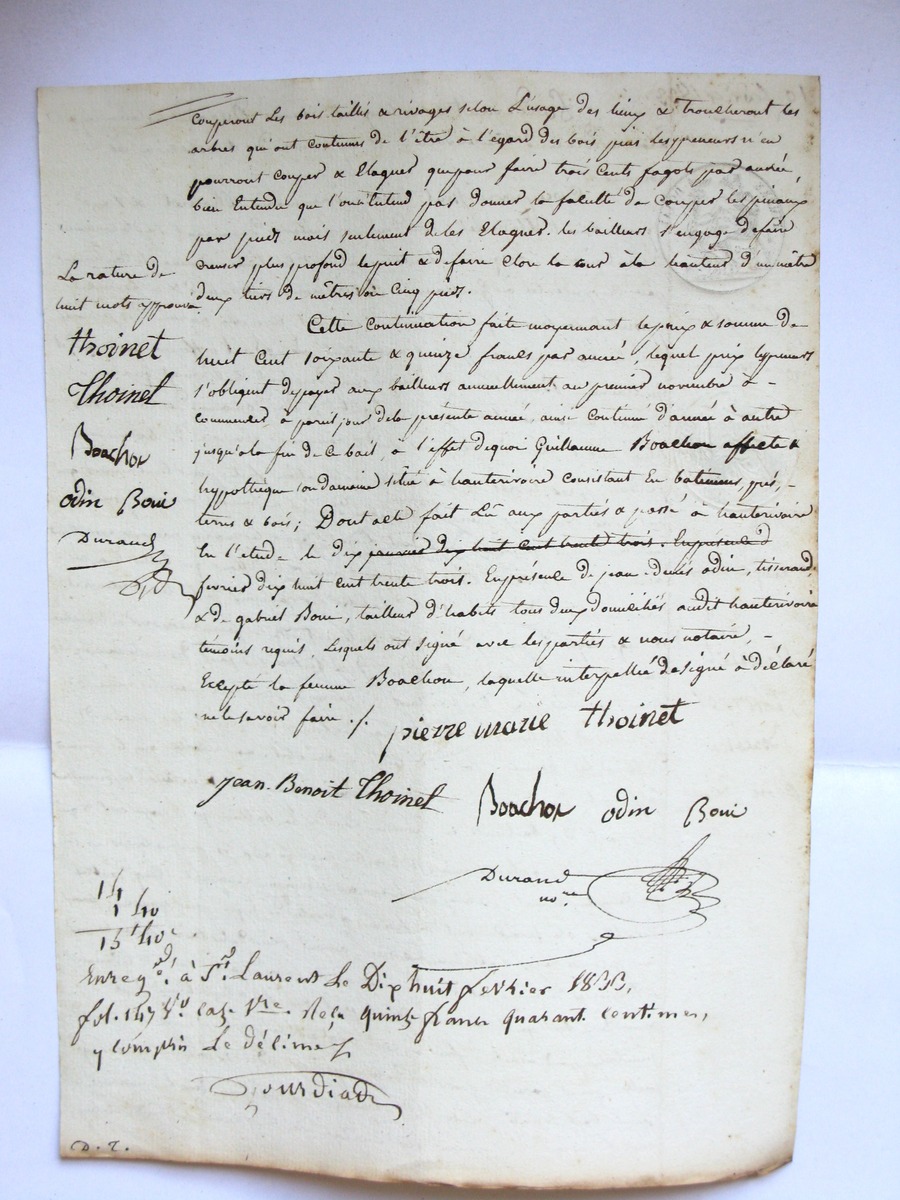 couperont les bois taillis & rivages selon l'usage des lieux & troncheront les
arbres qui ont contumes de l'être à l'égard des bois pins les preneurs n'en
pourront couper & Elaguer que pour faire trois Cents fagots par année,
bien Entendu que l'on n'entend pas donner la faculté de couper les pinaux
par pieds mais seulement de les Elaguer. les bailleurs s'engage de faire
creuser plus profond le puit & de faire clore la cour à la hauteur d'un mètre
deux tiers de mètres ou Cinq pieds.
La rature de
huit mots approuvé
thoinet
Thoinet
Boachon
odin Boui
Durand
Cette Continuation faite moyennant le prix & somme de
huit Cent soixante & quinze francs par année, lequel prix les preneurs
s'obligent de payer aux bailleurs annuellement au premier novembre à -
commencer à pareil jour de la présente année, ainsi continué d'année à autre
jusqu'à la fin de ce bail, à l'effet de quoi Guillaume Boachon affecte &
hypothèque son domaine situé à hauterivoire Consistant En batimens, prés, -
terres & bois; Dont acte fait Lû aux parties & passé à hauterivoire
En l'etude le dix janvier dix huit cent trente trois. En présence d
fevrier dix huit cent trente trois. En présence de jean-denis odin, tisserand,
& de gabriel Boui, tailleur d'habits tous deux domiciliés audit hauterivoire
témoins requis, Lesquels ont signé avec les parties & nous notaire, -
Excepté la femme Boachon, laquelle interpellée de signé à déclaré
ne le savoir faire ./.
pierre marie thoinet
Jean-Benoit Thoinet
Boachon odin Boui
Durand
no.re
14
1 40
15 40c
Enreg.é à St. Laurent Le Dix huit fevrier 1833,
fol. 147 Vo case 1re. Reçu quinze francs quarante centimes,
y compris le décime
Gourdiad
D. T.